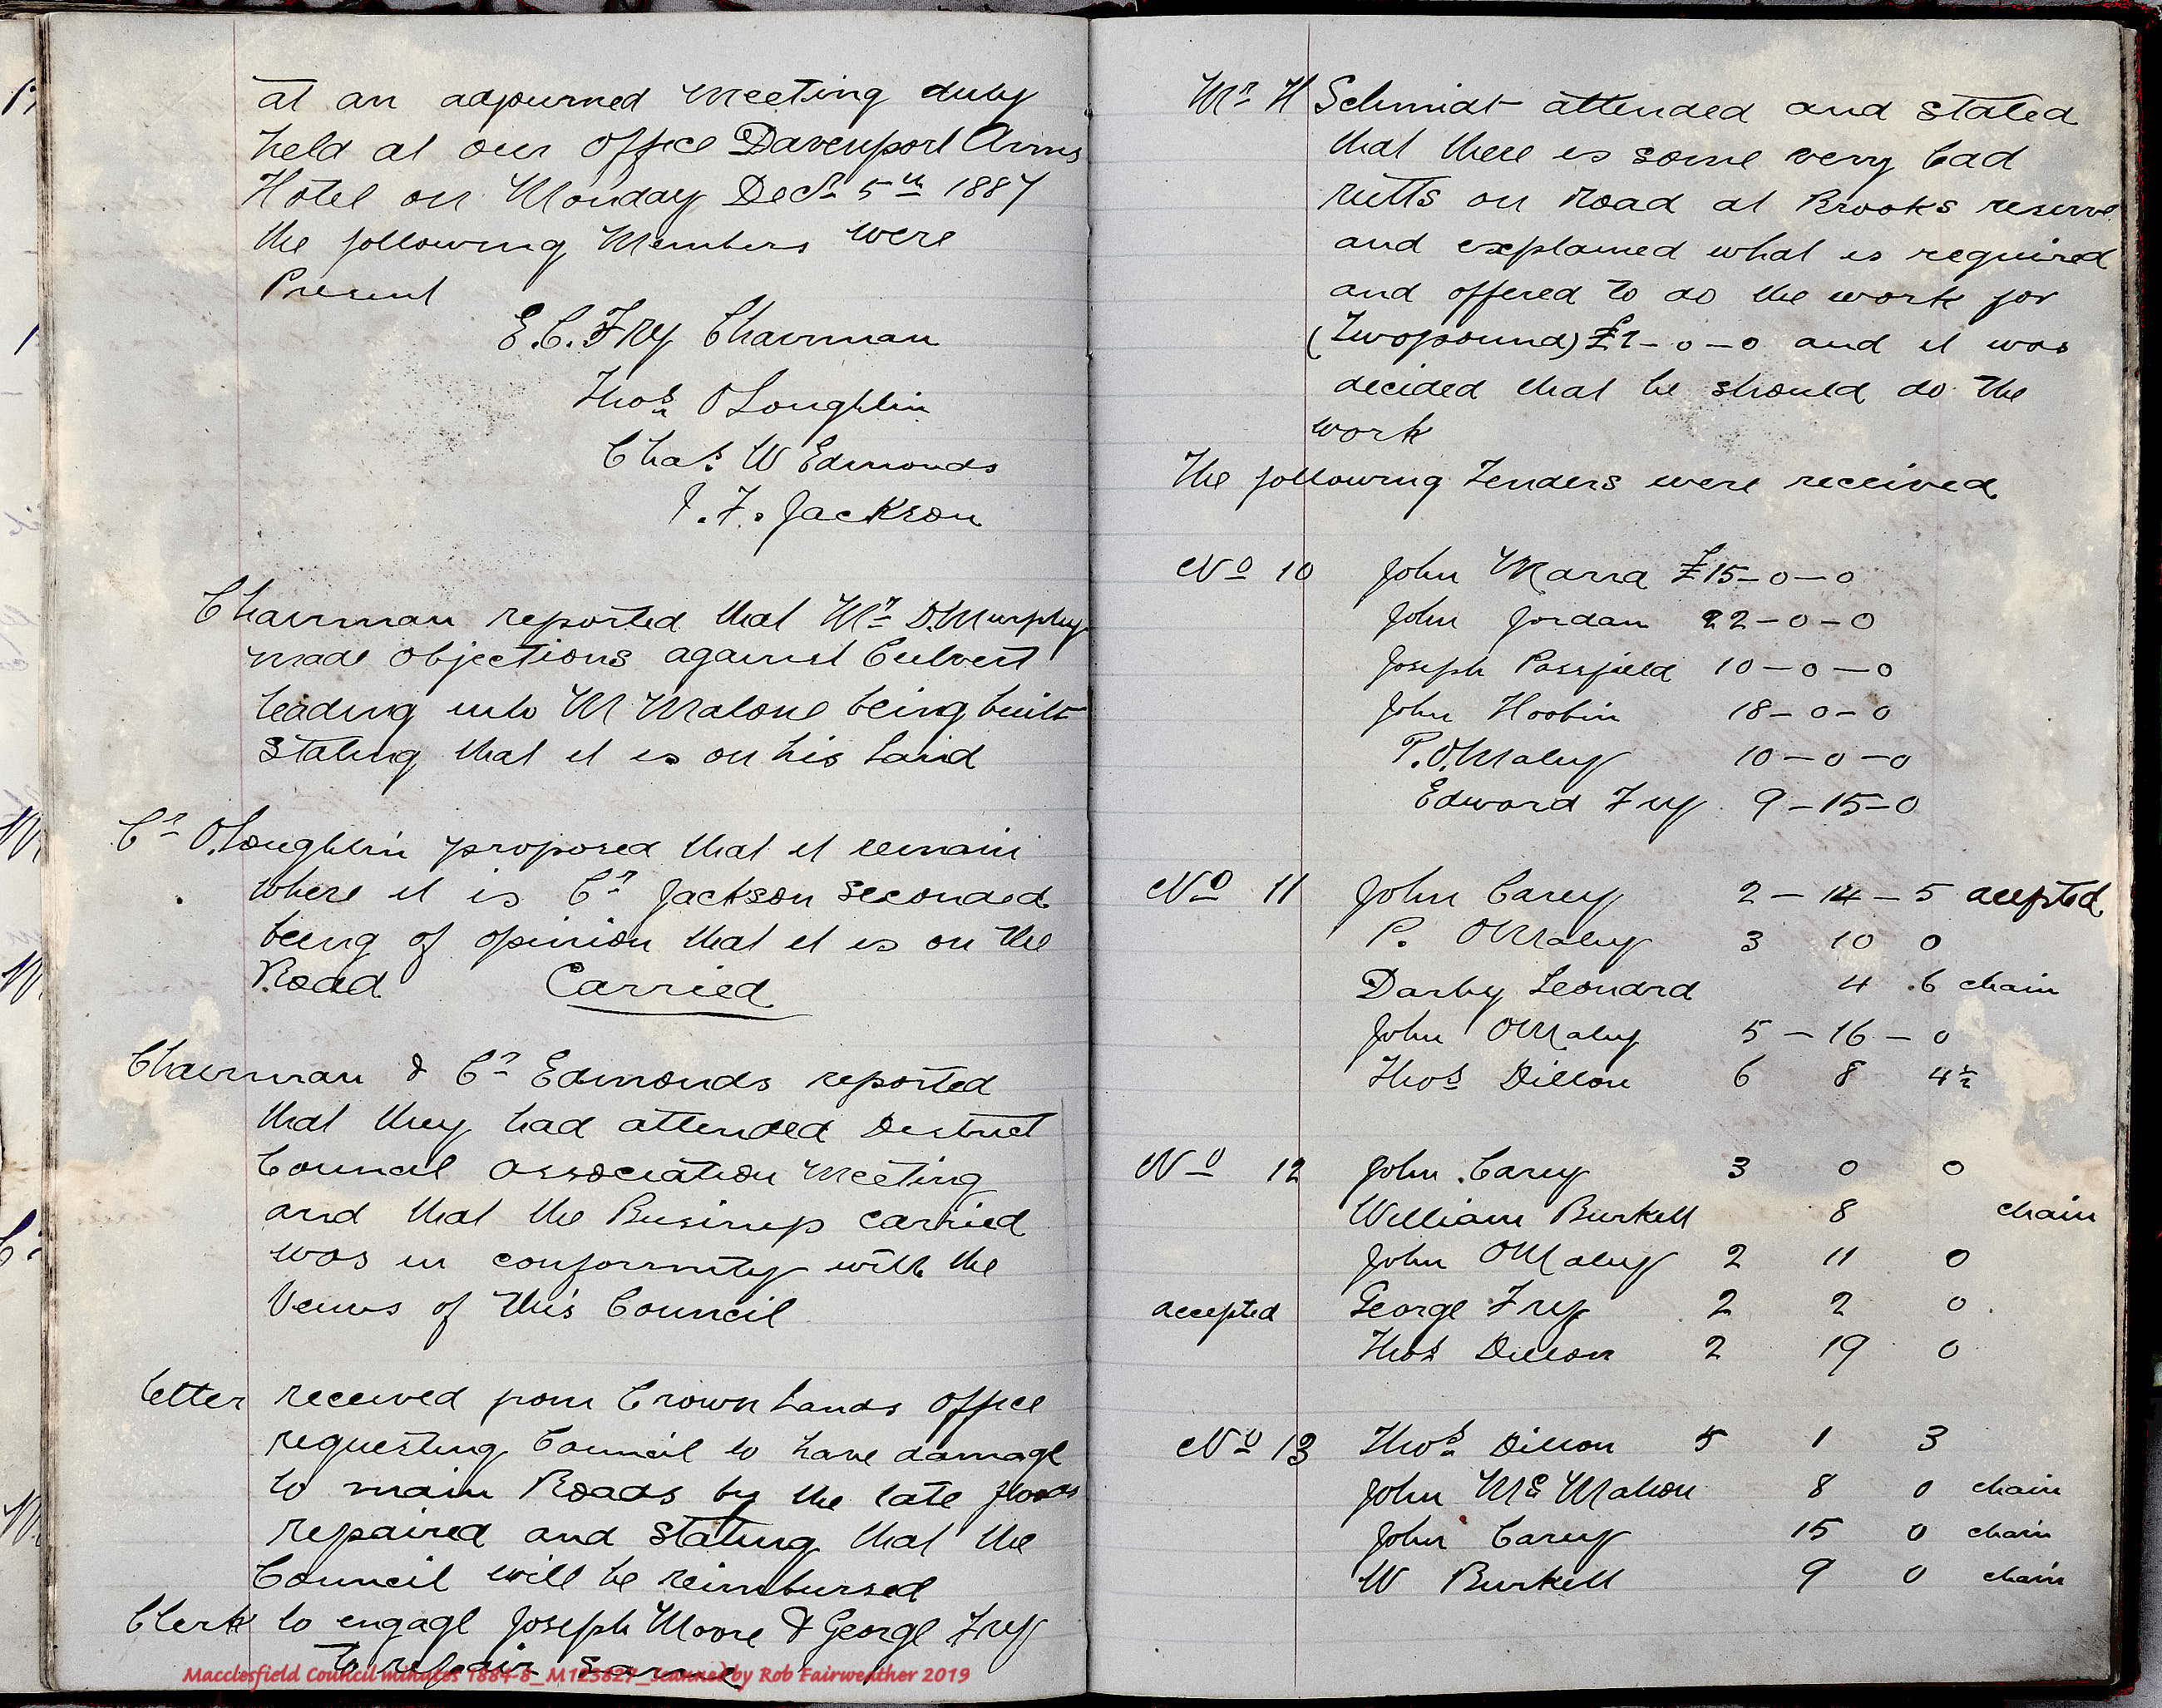 at an adjourned Meeting duly
held at our office Davenport Arms
Hotel on Monday Decr 5th 1887
the following Members were
Present
E.C. Fry Chairman
Thos O Loughlin
Chas. W Edmonds
J. F. Jackson
Chairman reported that Mr D. Murphy
made objections against Culvert
leading into M Malone being built
Stating that it is on his Land
Cr O.Loughlin proposed that it remain
where it is Cr Jackson Seconded
being of opinion that it is on the
Road Carried
Chairman & Cr Edmonds reported
that they had attended District
Council Association Meeting
and that the Business carried
was in conformity with the
Veiws of this Council
Letter received from Crown Lands Office
requesting Council to have damage
to main Roads by the late floods
repaired and Stating that the
Council will be reimbursed
Clerk to engage Joseph Moore & George Fry
to repair same
Macclesfield Council minutes 1884-8_M123827_scanned by Rob Fairweather 2019
Mr H Schmidt attended and stated
that there is some very bad
rutts on Road at Brooks reserve
and explained what is required
and offered to do the work for
(Twopound) £2-0-0 and it was
decided that he should do the
work
The following Tenders were received
No 10 John Marra £15-0-0
John Jordan 22-0-0
Joseph Passfield 10-0-0
John Hoobin 18-0-0
P.O.Maley 10-0-0
Edward Fry 9-15-0
No 11 John Carey 2-14-5 acepted
P. OMaley 3 10 0
Darby Leonard 4 .6 chain
John OMaley 5-16-0
Thos Dillon 6 8 4½
No 12 John Carey 3 0 0
William Burkell 8 chain
John OMaley 2 11 0
accepted George Fry 2 2 0
Thos Dillon 2 19 0
No 13 Thos Dillon 5 1 3
John Mc Mahon 8 0 chain
John Carey 15 0 chain
W Burkell 9 0 chain